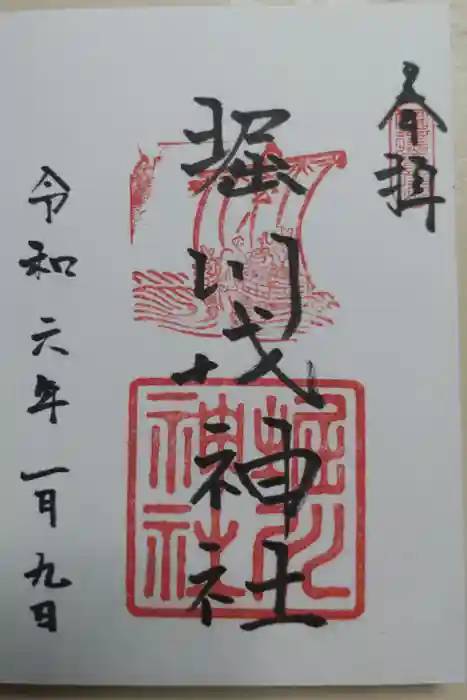 奉拝
堀川戎神社
堀川
神社
令和六年一月九日